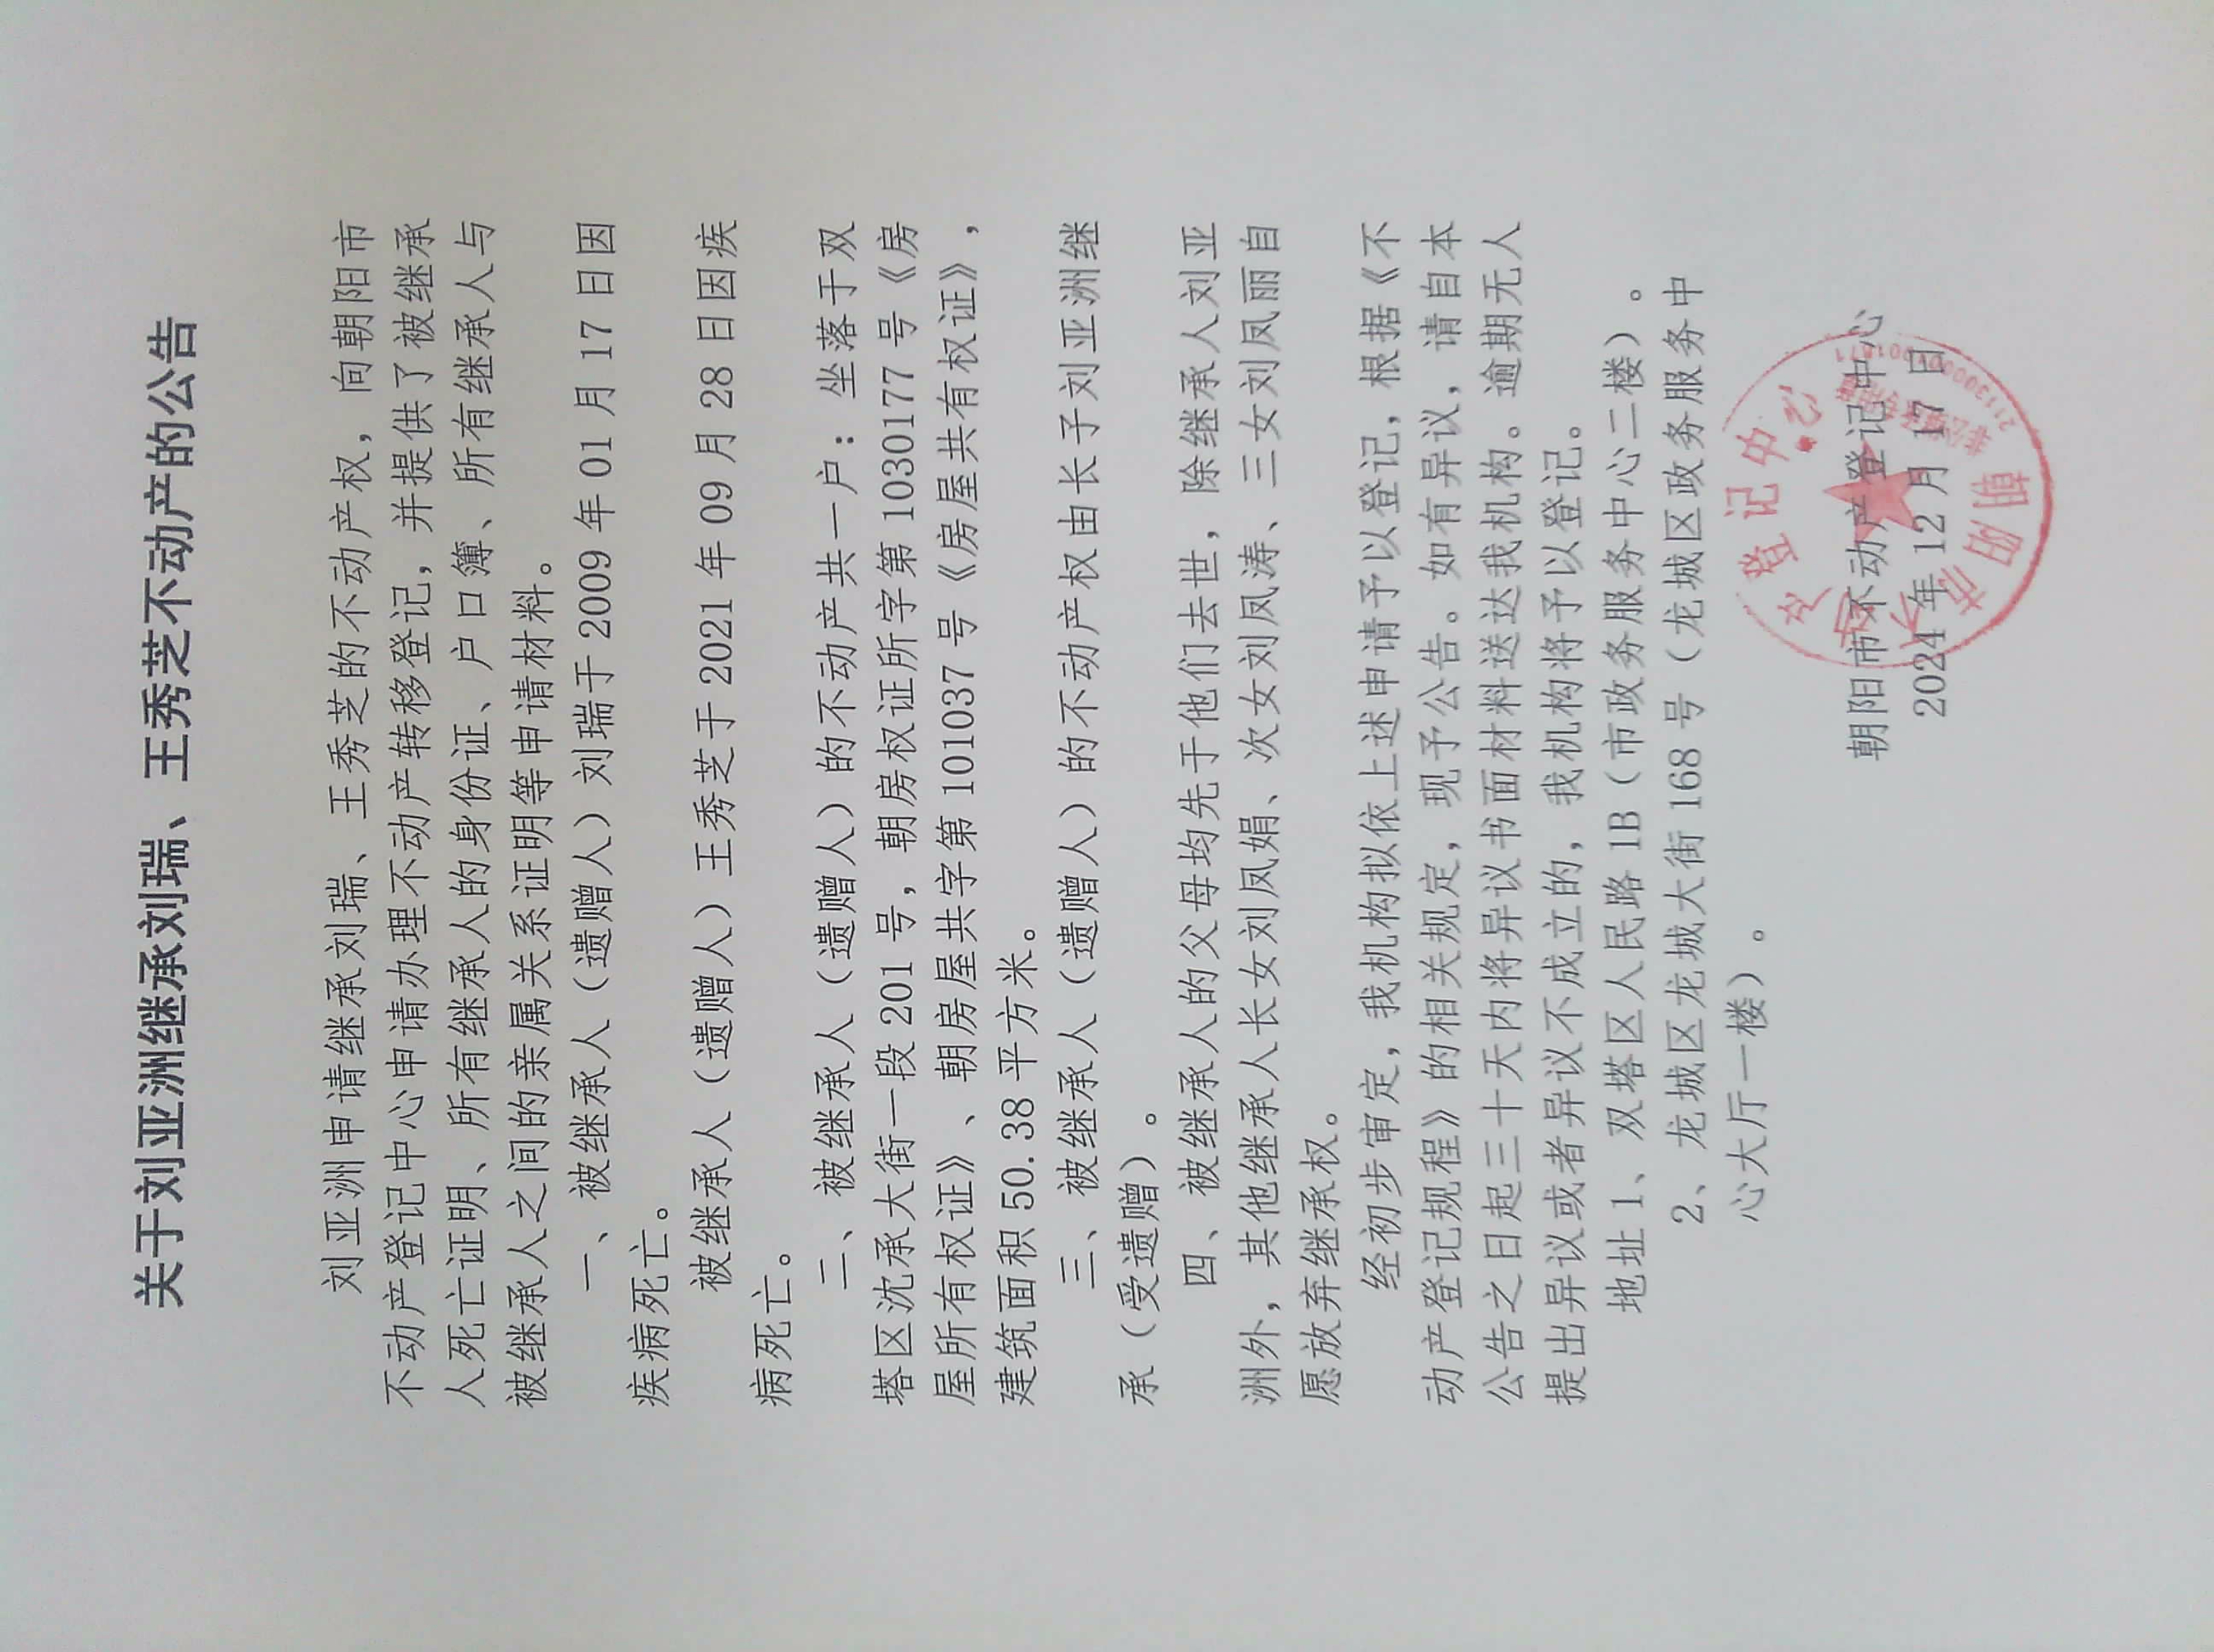 关于刘亚洲继承刘瑞、王秀芝不动产的公告
刘亚洲申请继承刘瑞、王秀芝的不动产权，向朝阳市
不动产登记中心申请办理不动产转移登记，并提供了被继承
人死亡证明、所有继承人的身份证、户口簿、所有继承人与
被继承人之间的亲属关系证明等申请材料。
一、被继承人（遗赠人）刘瑞于 2009 年 01 月 17 日因
疾病死亡。
被继承人（遗赠人）王秀芝于 2021 年 09 月 28 日因疾
病死亡。
二、被继承人（遗赠人）的不动产共一户：坐落于双
塔区沈承大街一段 201 号，朝房权证所字第 1030177 号《房
屋所有权证》、朝房房屋共字第 101037 号《房屋共有权证》，
建筑面积 50.38 平方米。
三、被继承人（遗赠人）的不动产权由长子刘亚洲继
承（受遗赠）。
四、被继承人的父母均先于他们去世，除继承人刘亚
洲外，其他继承人长女刘凤娟、次女刘凤涛、三女刘凤丽自
愿放弃继承权。
经初步审定，我机构拟依上述申请予以登记，根据《不
动产登记规程》的相关规定，现予公告。如有异议，请自本
公告之日起三十天内将异议书面材料送达我机构。逾期无人
提出异议或者异议不成立的，我机构将予以登记。
地址 1、双塔区人民路 1B（市政务服务中心二楼）。
2、龙城区龙城大街 168 号（龙城区政务服务中
心大厅一楼）。
朝阳市不动产登记中心
2024 年 12 月 17 日
朝阳市不动产登记中心